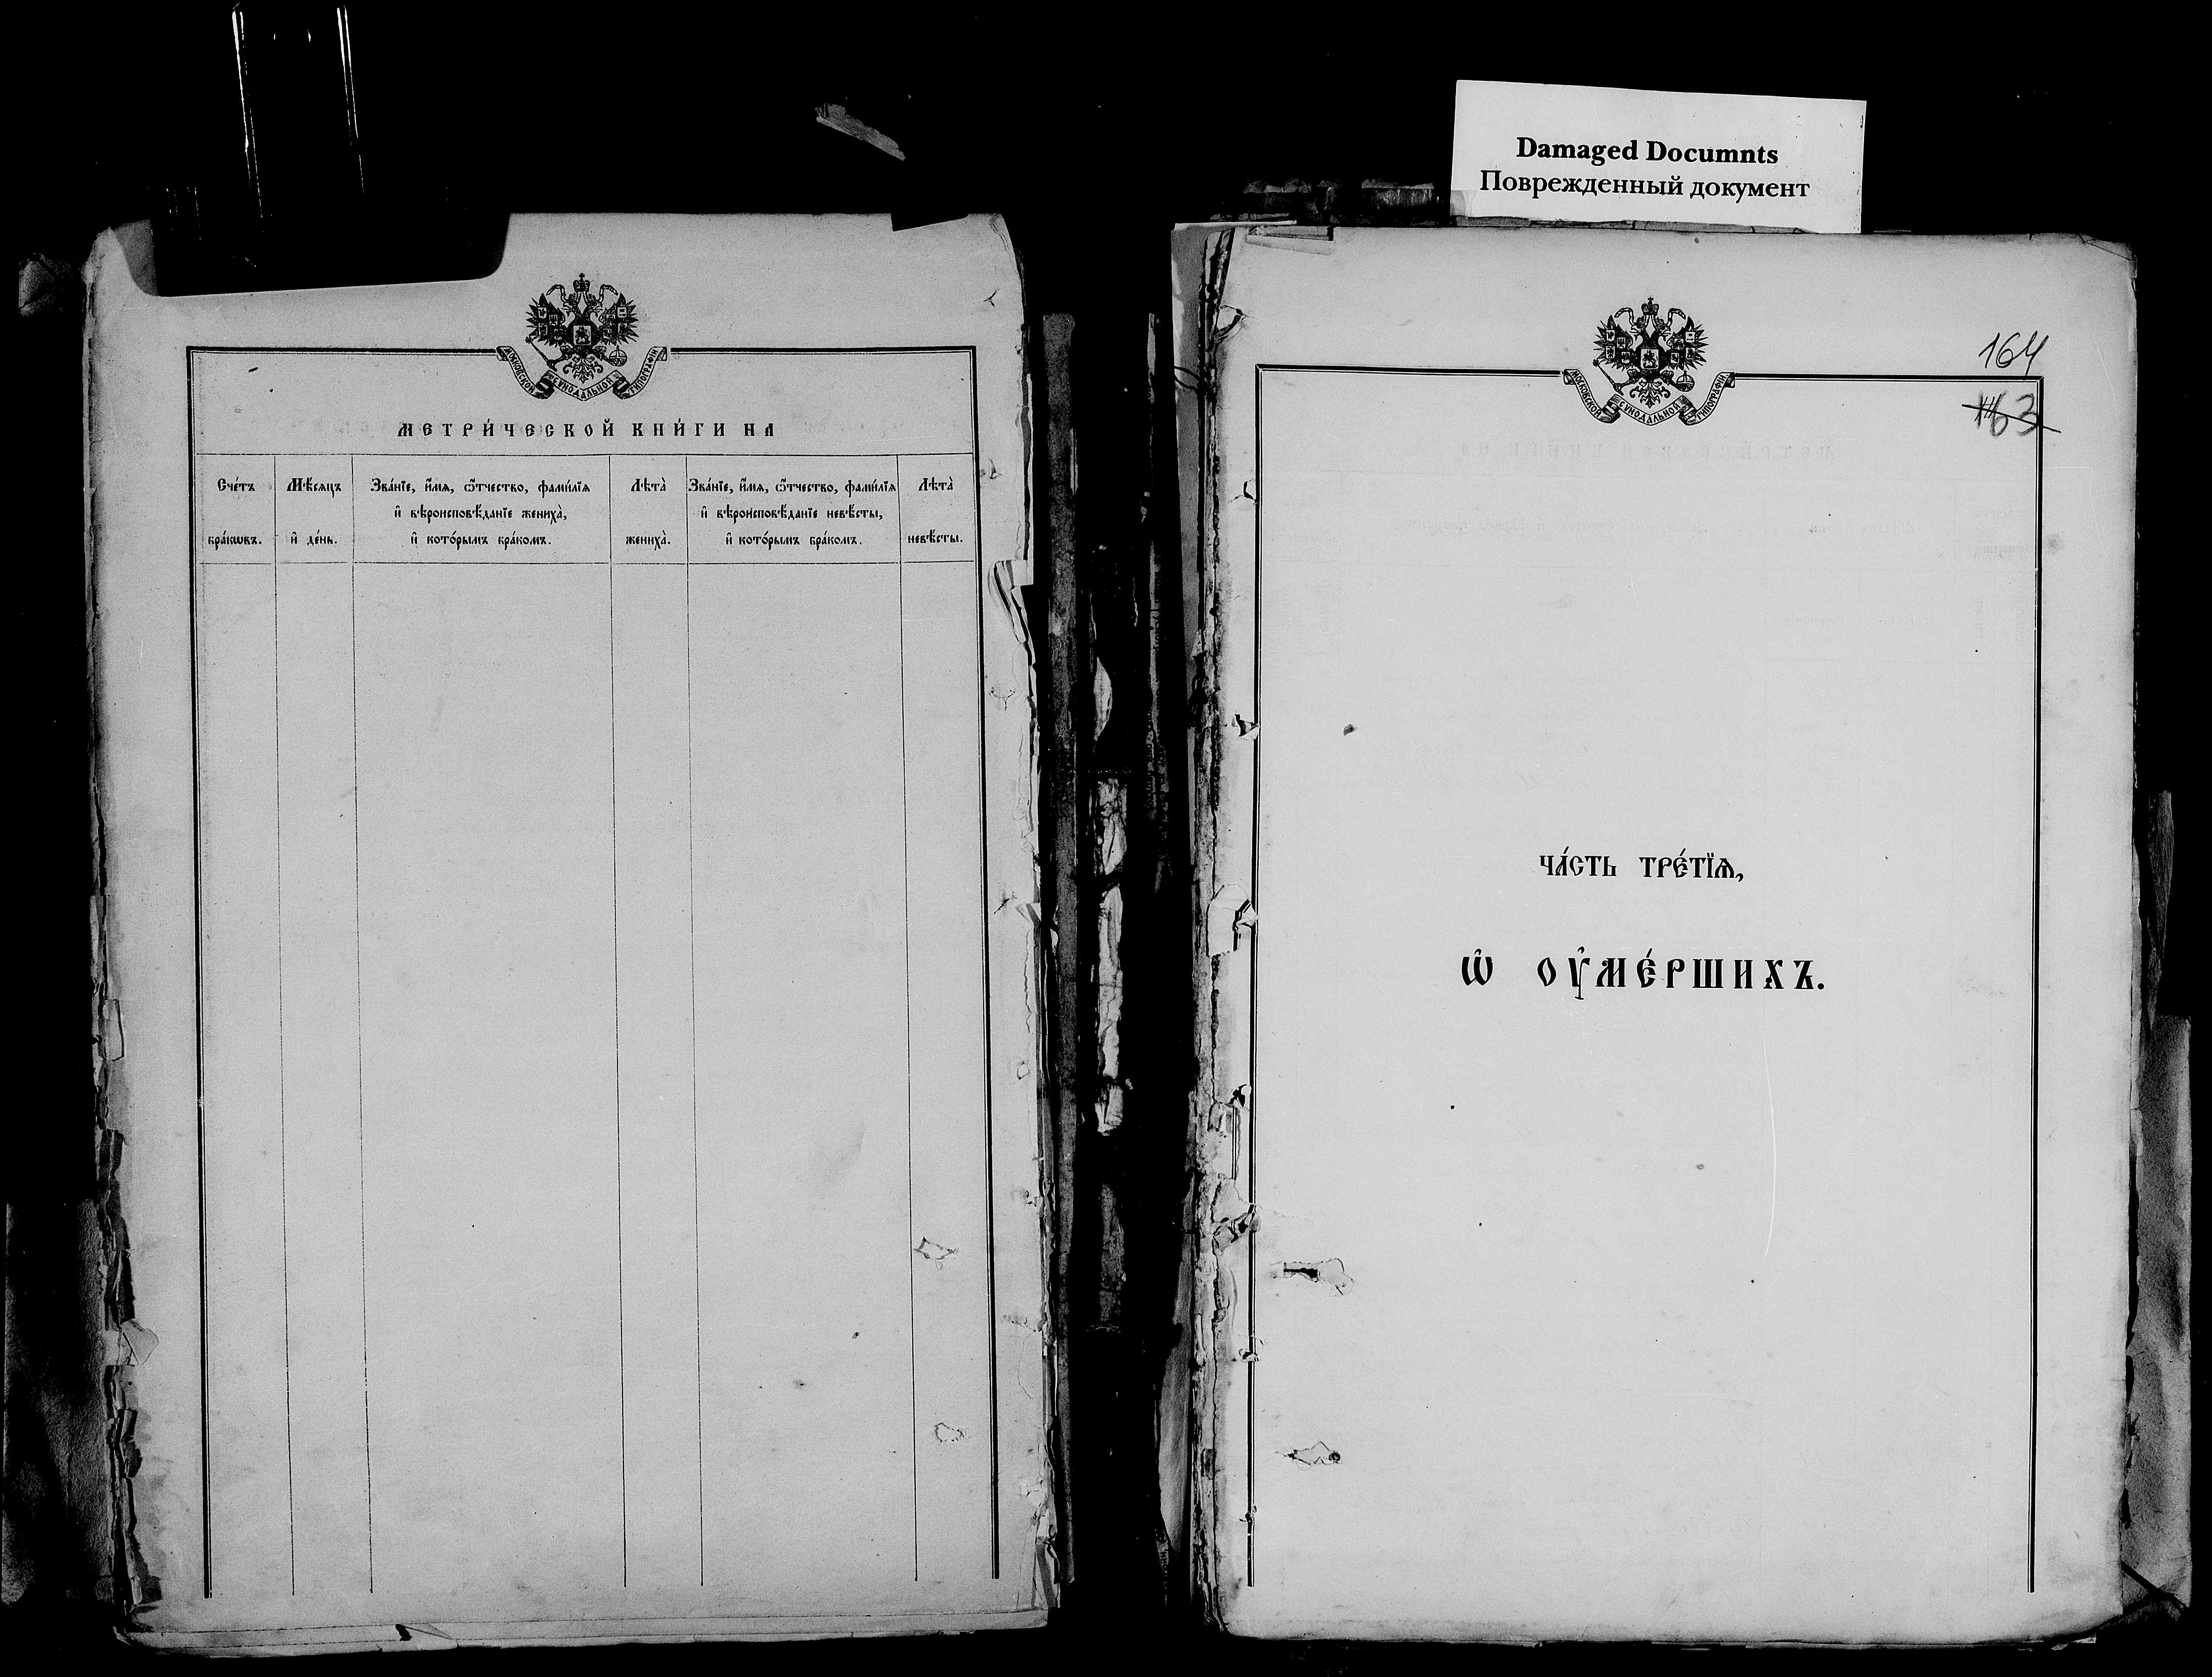 Damaged Documnts
Поврежденный документ
МОСКОВСКОЙ СѴНОДАЛЬНОЙ ТИПОГРАФІИ
МЕТРИ́ЧЕСКОЙ КНИ́ГИ НА
Сче́тъ бра́кѡвъ.
Мѣ́сяцъ и҆ де́нь.
Зва́нїе, и҆́мя, ѻ҆́тчество, фами́лїя
и҆ вѣроисповѣ́данїе жениха̀,
и҆ кото́рымъ бра́комъ.
Лѣта̀ жениха̀.
Зва́нїе, и҆́мя, ѻ҆́тчество, фами́лїя
и҆ вѣроисповѣ́данїе невѣ́сты,
и҆ кото́рымъ бра́комъ.
Лѣта̀ невѣ́сты.
МОСКОВСКОЙ СѴНОДАЛЬНОЙ ТИПОГРАФІИ
164
163
ЧА́СТЬ ТРЕ́ТЇѦ,
Ѡ҆ ОУ҆МЕ́РШИХЪ.